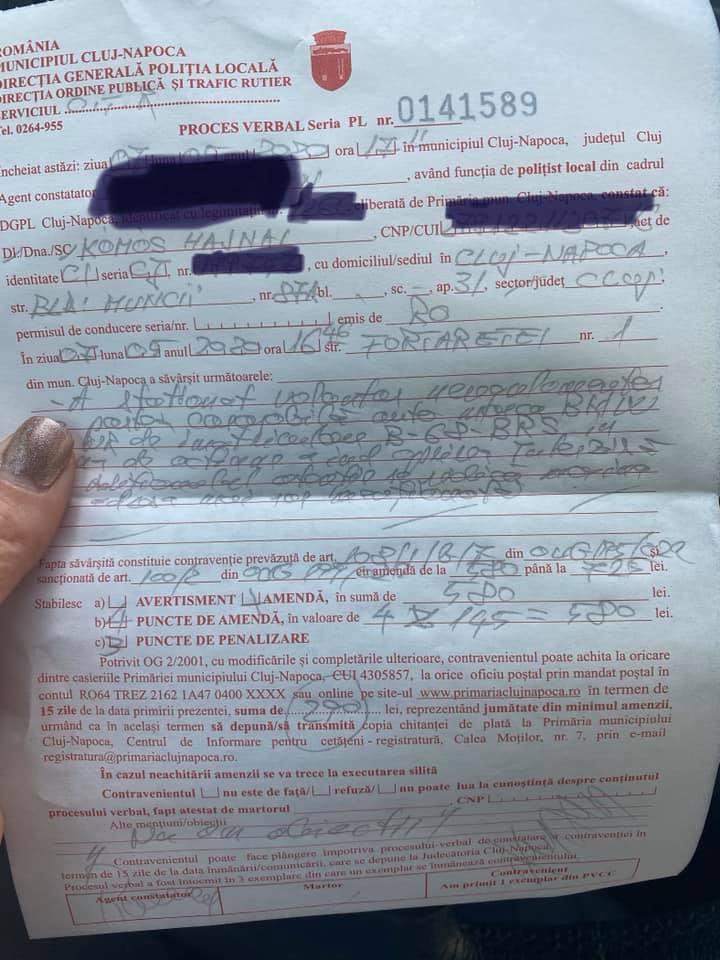 ROMÂNIA
MUNICIPIUL CLUJ-NAPOCA
DIRECȚIA GENERALĂ POLIȚIA LOCALĂ
DIRECȚIA ORDINE PUBLICĂ ȘI TRAFIC RUTIER
SERVICIUL
Tel. 0264-955
PROCES VERBAL Seria PL nr. 0141589
Încheiat astăzi: ziua 2020 ora 17 în municipiul Cluj-Napoca, județul Cluj
Agent constatator , având funcția de polițist local din cadrul
DGPL Cluj-Napoca, identificat cu legitimația eliberată de Primăria mun. Cluj-Napoca, constat că:
Dl./Dna./SC KOMOS HAJNAL, CNP/CUI act de
identitate CI seria CJ nr. , cu domiciliul/sediul în CLUJ-NAPOCA,
str. BLD. MUNCII, nr. bl. , sc. -, ap. 31, sector/județ CLUJ,
permisul de conducere seria/nr. emis de RO
În ziua 07 luna 05 anul 2020 ora 16 46 str. FORTARETEI nr. 1
din mun. Cluj-Napoca a săvârșit următoarele:
- A staționat voluntar neregulamentar
auto marca BMW
de B-68-BRS
de
Fapta săvârșită constituie contravenție prevăzută de art. 108/1/ din OUG 195/2002 și
sancționată de art. 100/2 din OUG cu amendă de la 580 până la 725 lei.
Stabilesc a) AVERTISMENT AMENDĂ, în sumă de 580 lei.
b) 4 PUNCTE DE AMENDĂ, în valoare de 4 x 145 = 580 lei.
c) 3 PUNCTE DE PENALIZARE
Potrivit OG 2/2001, cu modificările și completările ulterioare, contravenientul poate achita la oricare
dintre casieriile Primăriei municipiului Cluj-Napoca, CUI 4305857, la orice oficiu poștal prin mandat poștal în
contul RO64 TREZ 2162 1A47 0400 XXXX sau online pe site-ul www.primariaclujnapoca.ro în termen de
15 zile de la data primirii prezentei, suma de 290 lei, reprezentând jumătate din minimul amenzii,
urmând ca în același termen să depună/să transmită copia chitanței de plată la Primăria municipiului
Cluj-Napoca, Centrul de Informare pentru cetățeni - registratură, Calea Moților, nr. 7, prin e-mail
registratura@primariaclujnapoca.ro.
În cazul neachitării amenzii se va trece la executarea silită
Contravenientul nu este de față/ refuză/ nu poate lua la cunoștință despre conținutul
procesului verbal, fapt atestat de martorul , CNP
Alte mențiuni/obiecții
" Nu am obiecții "
Contravenientul poate face plângere împotriva procesului-verbal de constatare a contravenției în
termen de 15 zile de la data înmânării/comunicării, care se depune la Judecătoria Cluj-Napoca.
Procesul verbal a fost întocmit în 3 exemplare din care un exemplar se înmânează contravenientului.
Agent constatator
Martor
Contravenient
Am primit 1 exemplar din PVCC